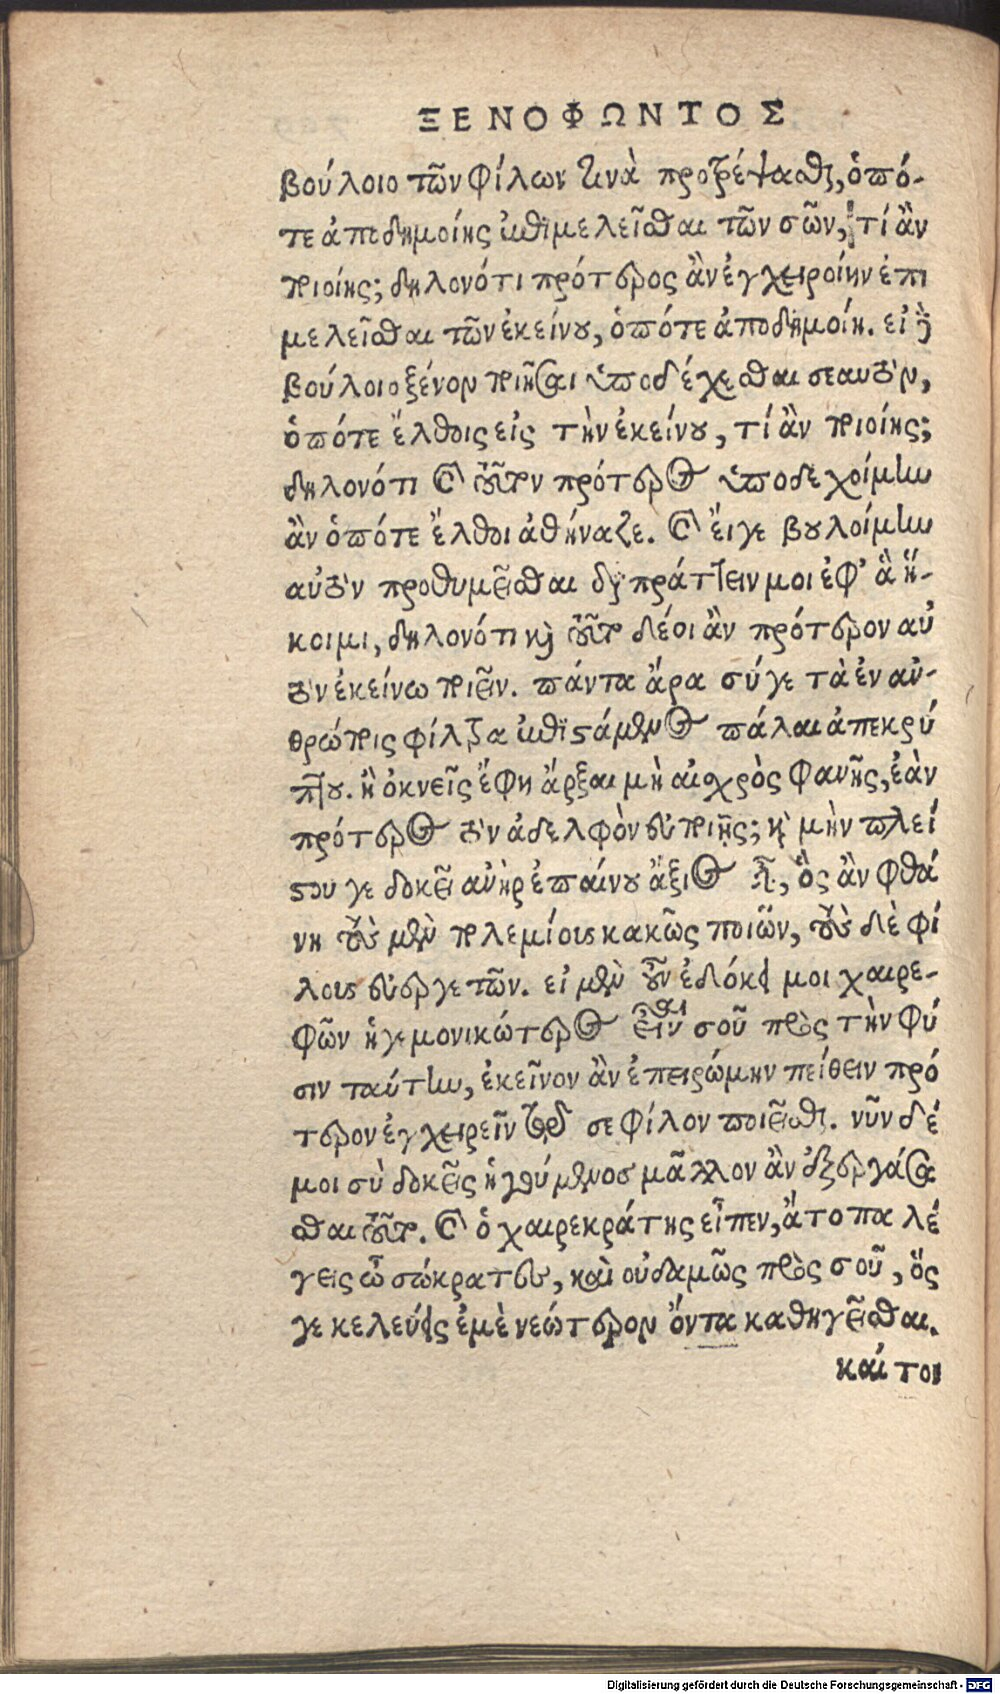 ΞΕΝΟΦΩΝΤΟΣ
βούλοιο τῶν φίλων τινὰ προτρέψασθαι, ὁπό-
τε ἀποδημοίης ἐπιμελεῖσθαι τῶν σῶν, τί ἂν
ποιοίης; δηλονότι πρότερος ἂν ἐγχειροίην ἐπι
μελεῖσθαι τῶν ἐκείνου, ὁπότε ἀποδημοίη. εἰ δὲ
βούλοιο ξένον ποιῆσαι ὑποδέχεσθαι σεαυτὸν,
ὁπότε ἔλθοις εἰς τὴν ἐκείνου, τί ἂν ποιοίης;
δηλονότι καὶ τοῦτον πρότερος ὑποδεχοίμην
ἂν ὁπότε ἔλθοι ἀθήναζε. καὶ εἴ γε βουλοίμην
αὐτὸν προθυμεῖσθαι διαπράττειν μοι ἐφ' ἃ ἥ-
κοιμι, δηλονότι καὶ τοῦτο δέοι ἂν πρότερον αὐ
τὸν ἐκείνω ποιεῖν. πάντα ἄρα σύ γε τὰ ἐν ἀν-
θρώποις φίλτρα ἐπιστάμενος πάλαι ἀπεκρύ
πτου. ἢ ὀκνεῖς ἔφη ἄρξαι μὴ αἰσχρὸς φανῆς, ἐὰν
πρότερος τὸν ἀδελφὸν εὖ ποιῇς; καὶ μὴν πλεί
στου γε δοκεῖ ἀνὴρ ἐπαίνου ἄξιος εἶναι, ὃς ἂν φθά
νη τοὺς μὲν πολεμίους κακῶς ποιῶν, τοὺς δὲ φί
λους εὐεργετῶν. εἰ μὲν οὖν ἐδόκει μοι χαιρε-
φῶν ἡγεμονικώτερος εἶναι σοῦ πρὸς τὴν φύ
σιν ταύτην, ἐκεῖνον ἂν ἐπειρώμην πείθειν πρό
τερον ἐγχειρεῖν τοῦ σε φίλον ποιεῖσθαι. νῦν δέ
μοι σὺ δοκεῖς ἡγούμενος μᾶλλον ἂν ἐξεργάσα
σθαι τοῦτο. καὶ ὁ χαιρεκράτης εἶπεν, ἄτοπα λέ
γεις ὦ σώκρατες, καὶ οὐδαμῶς πρὸς σοῦ, ὅς
γε κελεύεις ἐμὲ νεώτερον ὄντα καθηγεῖσθαι.
καί τοι
Digitalisierung gefördert durch die Deutsche Forschungsgemeinschaft - DFG